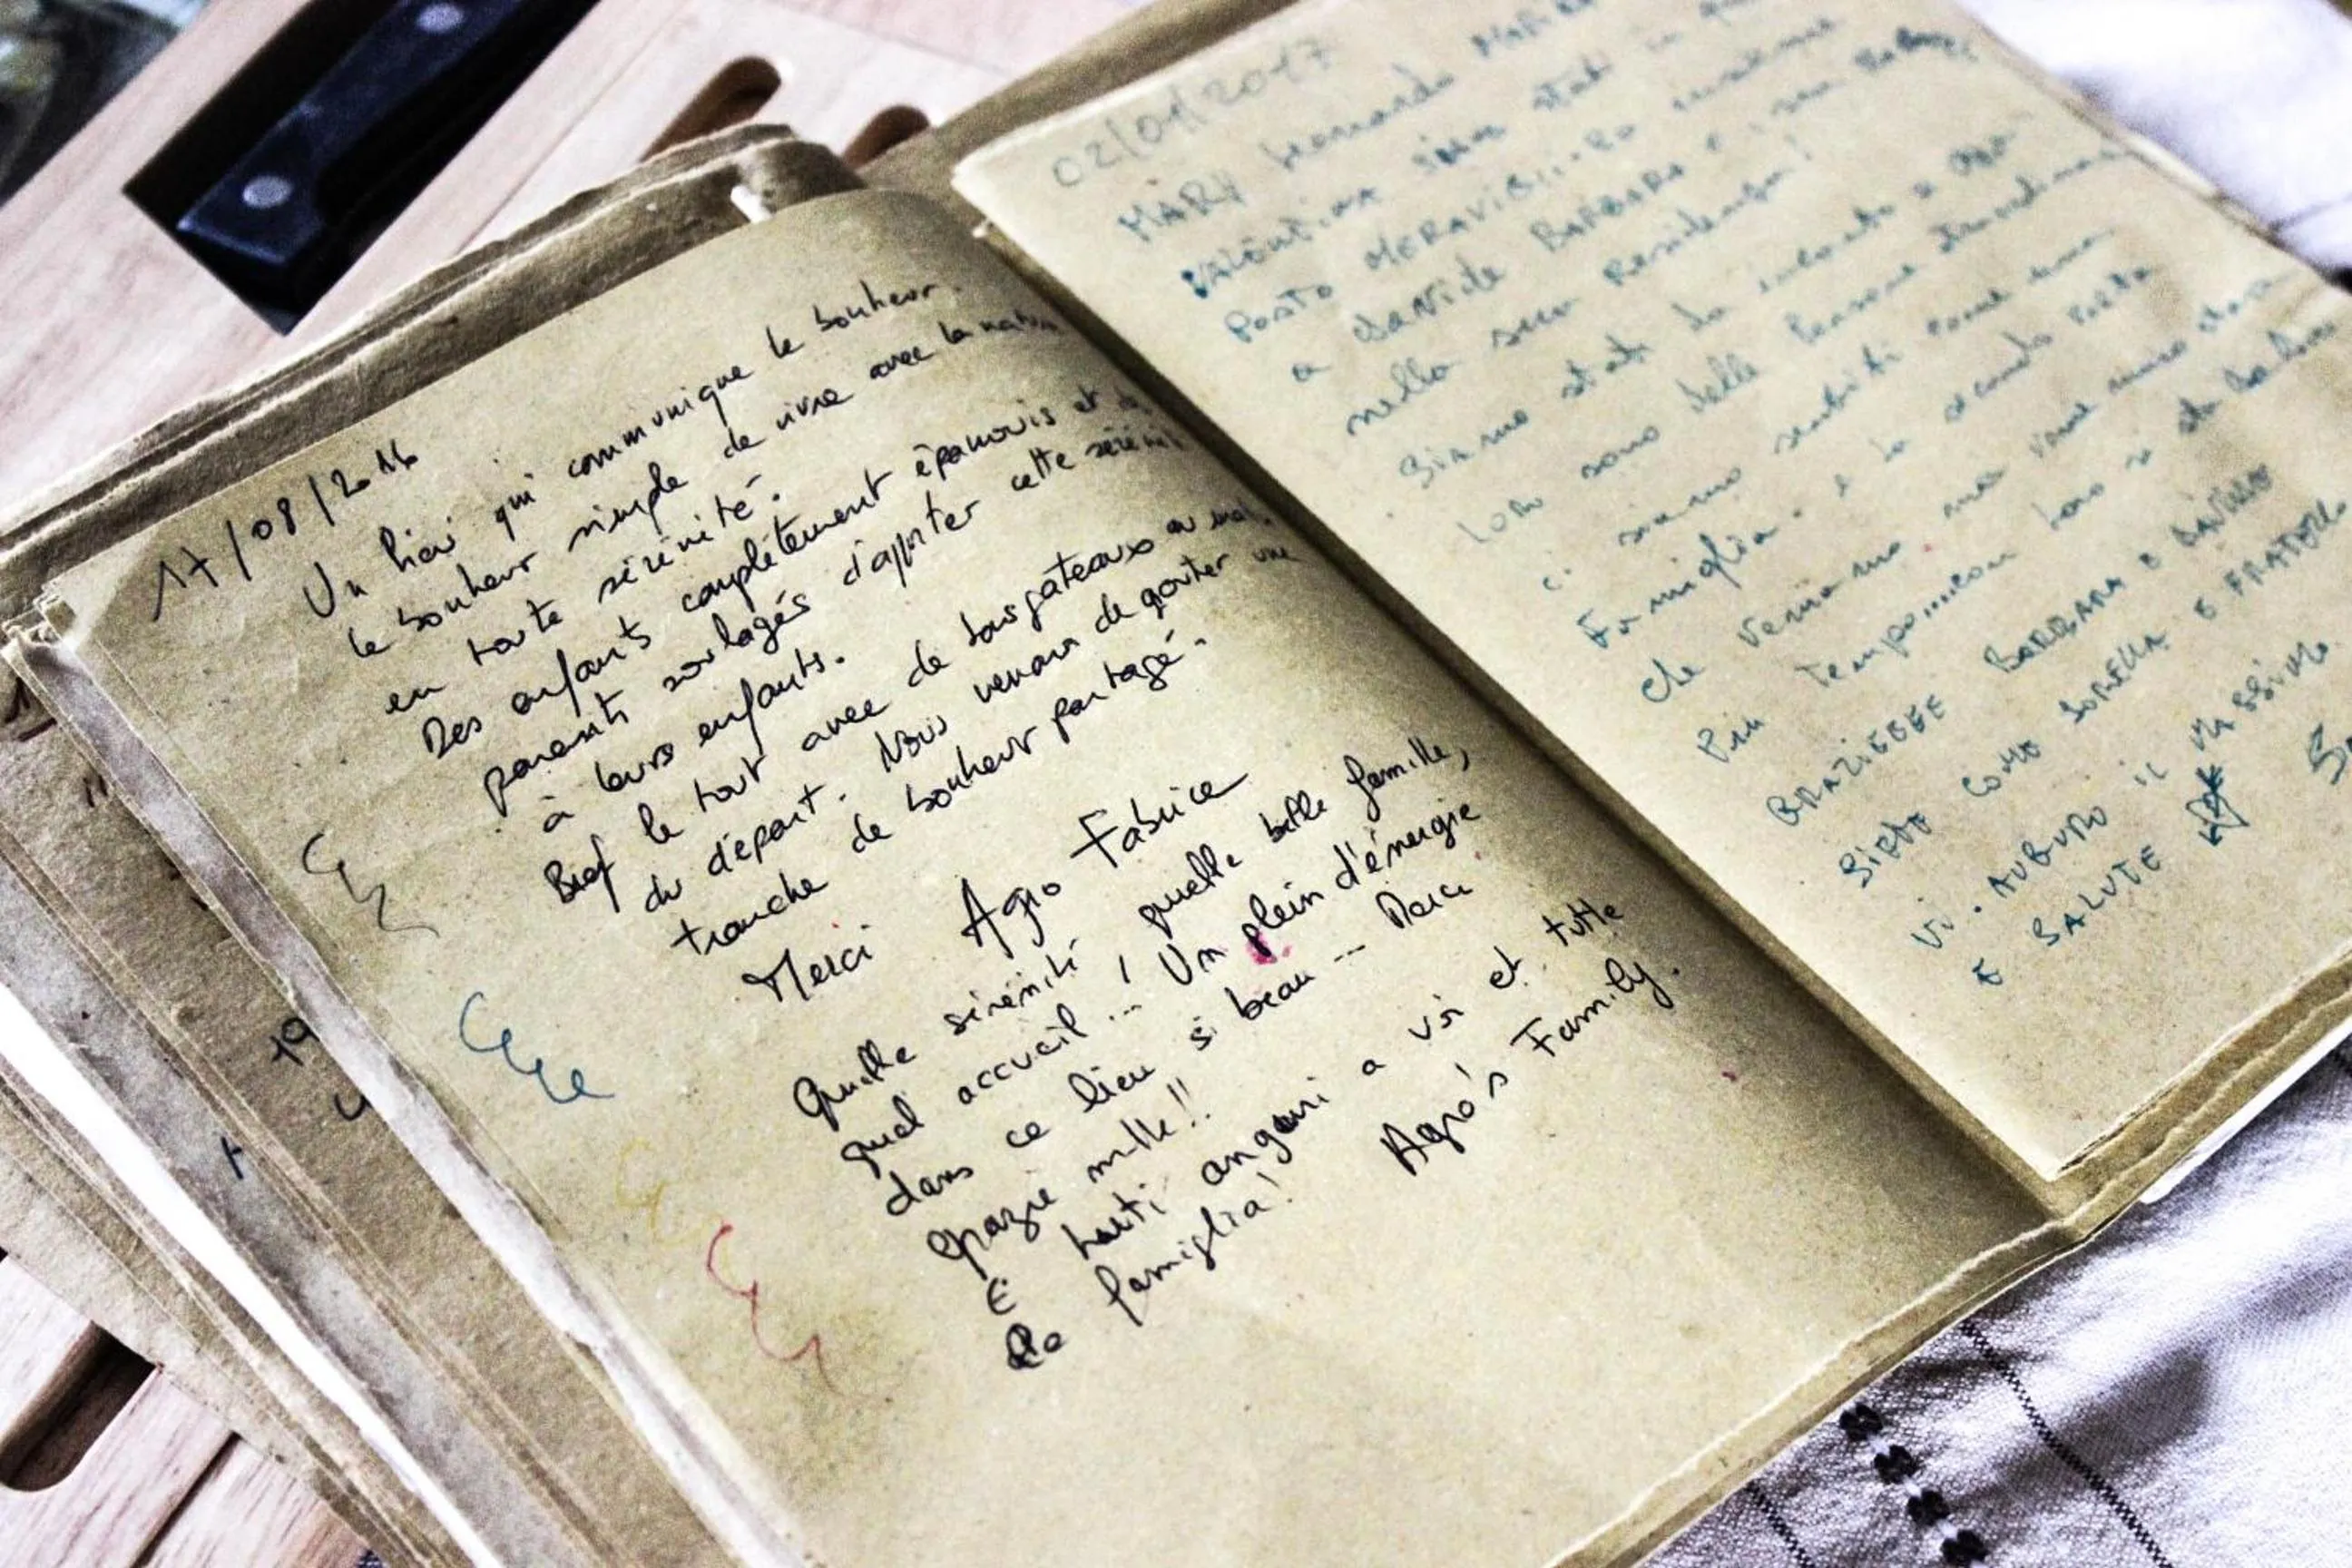 17/08/2016
Un lieu qui communique le bonheur.
le bonheur simple de vivre avec la nature
en toute sérénité.
Des enfants complètement épanouis et des
parents soulagés d'apporter cette sérénité
à leurs enfants.
Bref le tout avec de bons gateaux au
du départ. Nous venons de gouter une
tranche de bonheur partagé.
Merci Agro Fabrice
Quelle sérénité, quelle belle famille,
quel accueil ... Un plein d'énergie
dans ce lieu si beau ... Merci
Grazie mille!!
E tanti anguri a voi et tutte
la famiglia! Agro's Family.
02/01/2017
MARY Leonardo
VALENTINA siamo stati in
Posto MERAVIGLIOSO insieme
a Davide BARBARA e i suoi
nella sua Residenza!
Siamo stati da incanto e
loro sono delle persone straordinarie
ci siamo sentiti come una
Famiglia. e la seconda volta
che veniamo ma
Più Tempo....con loro si sta
GRAZIEEEE BARBARA E DAVIDE
SIETE COME SORELLA E FRATELLO
Vi. AUGURO IL MASSIMO
E SALUTE